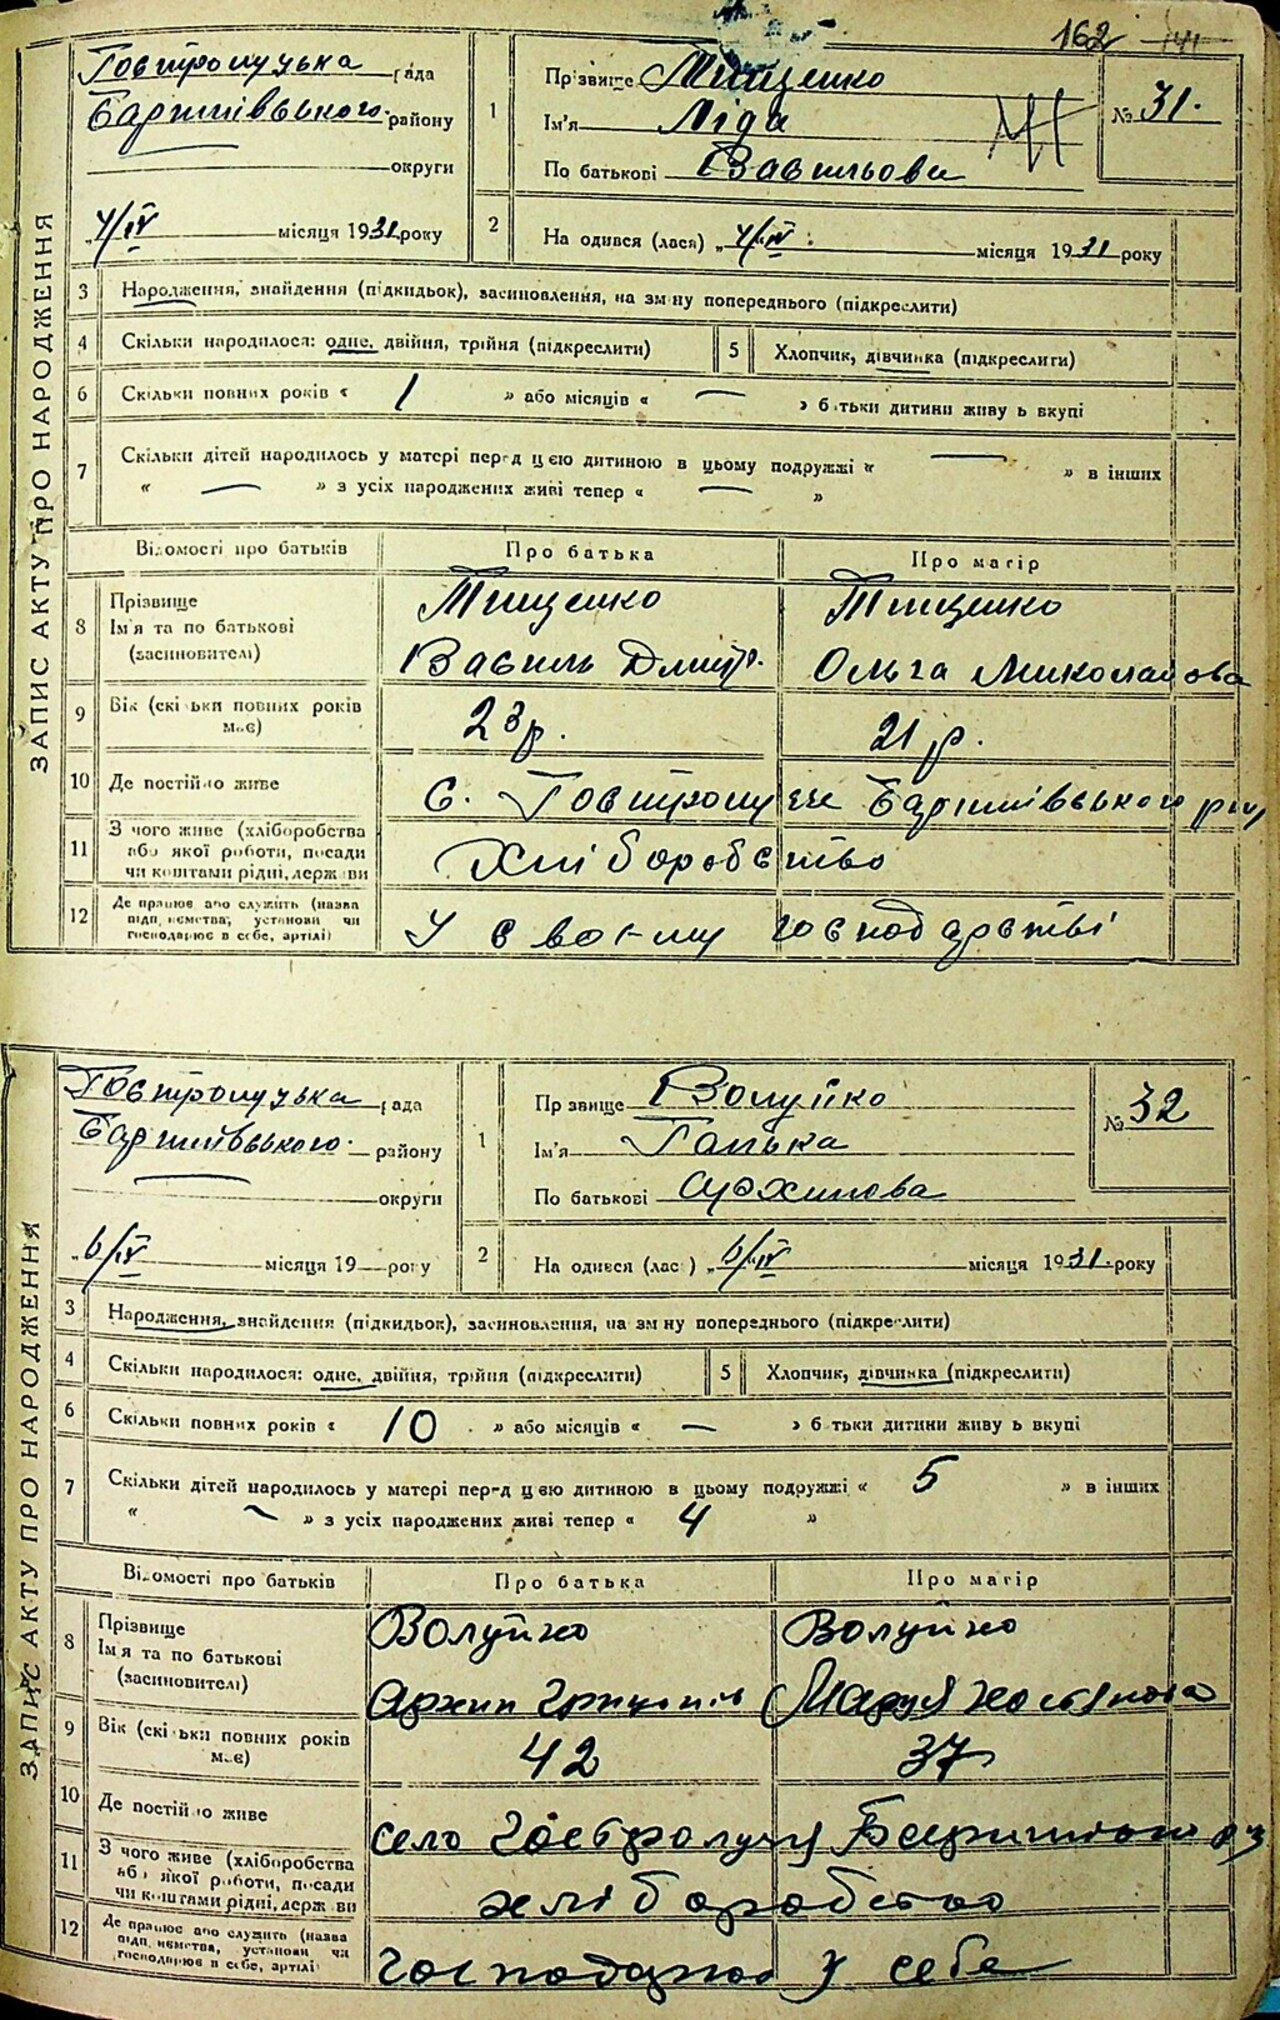 162 141
ЗАПИС АКТУ ПРО НАРОДЖЕННЯ
Гостролуцька рада
Баришівського району
округи
4/IV місяця 1931 року
1
Прізвище Тищенко
Ім'я Ліда
По батькові Васильова
№ 31.
2
На одився (лася) „4/IV місяця 1931 року
3 Народження, знайдення (підкидьок), засиновлення, на зм ну попереднього (підкреслити)
4 Скільки народилося: одне, двійня, трійня (підкреслити) 5 Хлопчик, дівчинка (підкреслити)
6 Скільки повних років « 1 » або місяців « — » б тьки дитини живу ь вкупі
7 Скільки дітей народилось у матері перед цією дитиною в цьому подружжі « — » в інших
« — » з усіх народжених живі тепер « — »
Відомості про батьків Про батька Про матір
8 Прізвище
Ім'я та по батькові
(засиновителі)
Тищенко Тищенко
Василь Дмитр. Ольга Миколайова
9 Вік (скі ьки повних років має)
23 р. 21 р.
10 Де постійно живе
с. Гостролуччє Баришівського р-ну
11 З чого живе (хліборобства або якої роботи, посади чи коштами рідні, держ ви
Хліборобство
12 Де працює або служить (назва підп иємства, установи чи господарює в себе, артілі)
У своєму господарстві
ЗАПИС АКТУ ПРО НАРОДЖЕННЯ
Гостролуцька рада
Баришівського району
округи
„6/IV місяця 19 — року
1
Пр звище Волуйко
Ім'я Галька
По батькові Архипова
№ 32
2
На одився (лас ) „6/IV місяця 1931. року
3 Народження, знайдення (підкидьок), засиновлення, на зм ну попереднього (підкреслити)
4 Скільки народилося: одне, двійня, трійня (підкреслити) 5 Хлопчик, дівчинка (підкреслити)
6 Скільки повних років « 10 » або місяців « — » б тьки дитини живу ь вкупі
7 Скільки дітей народилось у матері перед цією дитиною в цьому подружжі « 5 » в інших
« — » з усіх народжених живі тепер « 4 »
Відомості про батьків Про батька Про матір
8 Прізвище
Ім'я та по батькові
(засиновителі)
Волуйко Волуйко
Архип Маруся
9 Вік (скі ьки повних років має)
42 37
10 Де постійно живе
село Гостролуччя
11 З чого живе (хліборобства аб якої роботи, посади чи коштами рідні, держ ви
хліборобство
12 Де працює або служить (назва підп иємства, установи чи господарює в себе, артілі)
у себе